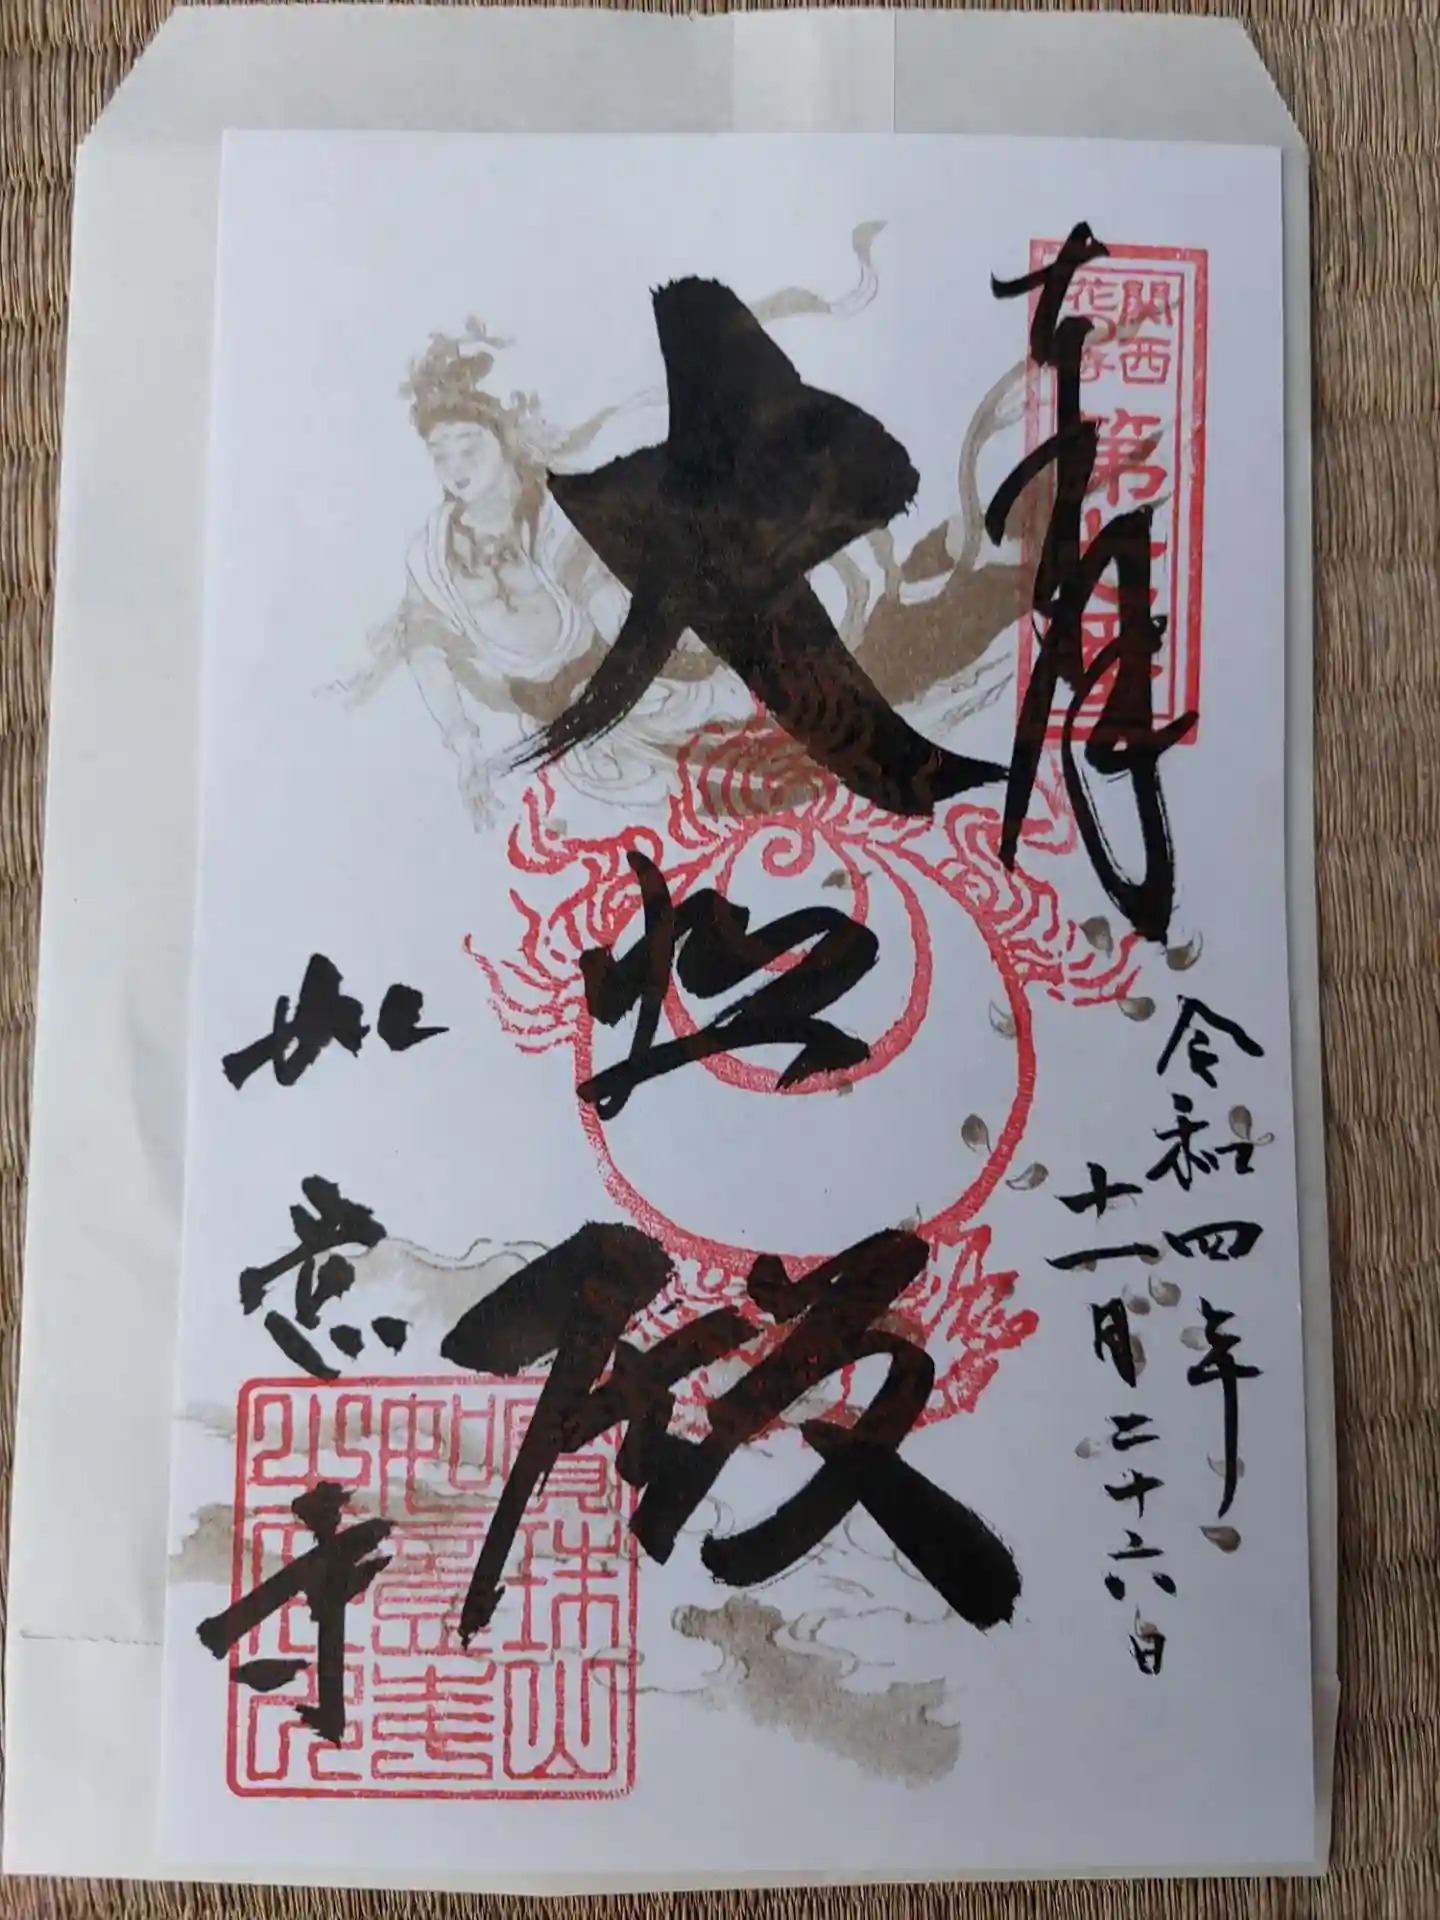 奉拝
関西
花の寺
第七番
令和四年
十一月二十六日
大悲殿
如意寺
寳珠山
如意寺